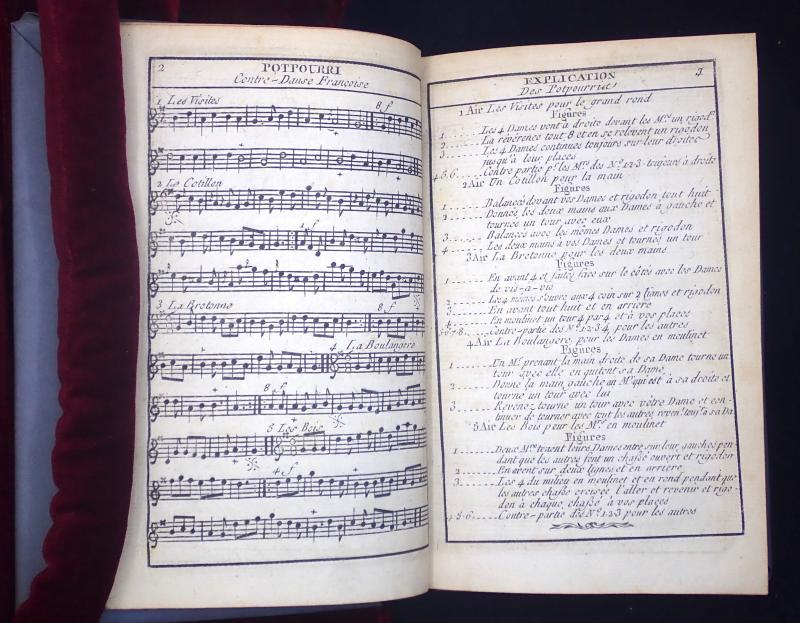 2
POTPOURRI
Contre-Danse Françoise
1 Les Visites
8 f
2 Le Cotillon
3 La Bretonne
8 f
4 La Boulangere
8 f
5 Les Bois
4 f
3
EXPLICATION
Des Potpourris
1 Air Les Visites pour le grand rond
Figures
1 Les 4 Dames vont à droite devant les Mrs un rigodn
2 La révérence tout 8 et en se relevent un rigodon
3 Les 4 Dames continues toujours sur leur droites
jusqu'à leur places
4.5.6. Contre partie pr les Mrs des No 1.2.3. toujours à droite
2 Air Un Cotillon pour la main
Figures
1 Balancés devant vos Dames et rigodon tout huit
2 Donnés les deux mains aux Dames à gauche et
tournés un tour avec eux
3 Balancés avec les mêmes Dames et rigodon
4 Les deux mains à vos Dames et tournés un tour
3 Air La Bretonne pour les deux mains
Figures
1 En avant 4 et faites face sur le côtés avec les Dames
de vis-a-vis
2 Les 4 mêmes s'ouvre aux 4 coin sur 2 lignes et rigodon
3 En avant tout huit et en arriere
4 En moulinet un tour 4 par 4 et à vos places
5.6.7.8. Contre-partie des No 1.2.3.4. pour les autres
4 Air La Boulangere pour les Dames en moulinet
Figures
1 Un Mr prenant la main droite de sa Dame tourne un
tour avec elle en quitent sa Dame
2 Donne la main gauche au Mr qui est à sa droite et
tourne un tour avec lui
3 Revenez tourne un tour avec vôtre Dame et con-
tinuer de tourner avec tout les autres revent toujs à sa Da.
5 Air Les Bois pour les Mrs en moulinet
Figures
1 Deux Mrs tenent leurs Dames entre sur leur gauches pen-
dant que les autres font un chassé ouvert et rigodon
2 En avent sur deux lignes et en arriere
3 Les 4 du milieu en moulinet et en rond pendant que
les autres chassé croisée l'aller et revenir et rigo-
don à chaque chassé à vos places
4.5.6. Contre-partie des No 1.2.3 pour les autres